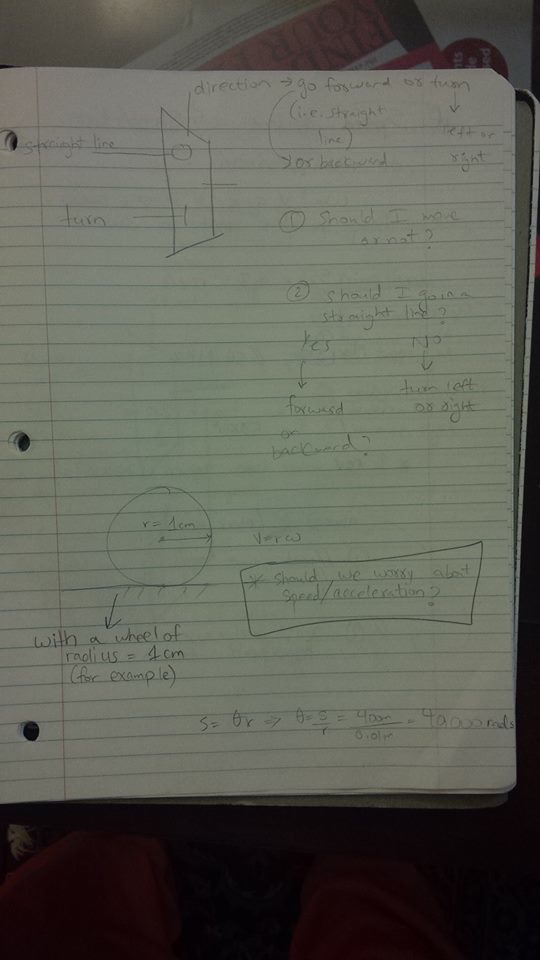 FIND
YOUR
direction → go forward or turn
(i.e. straight
line)
or backward
left or
right
straight line
turn
① Should I move
or not?
② Should I go in a
straight line?
Yes
NO
forward
or
backward?
turn left
or right
r = 1cm
V=rω
* Should we worry about
speed/acceleration?
with a wheel of
radius = 1cm
(for example)
S = θr ⇒ θ = S/r = 400m/0.01m = 40,000 rads